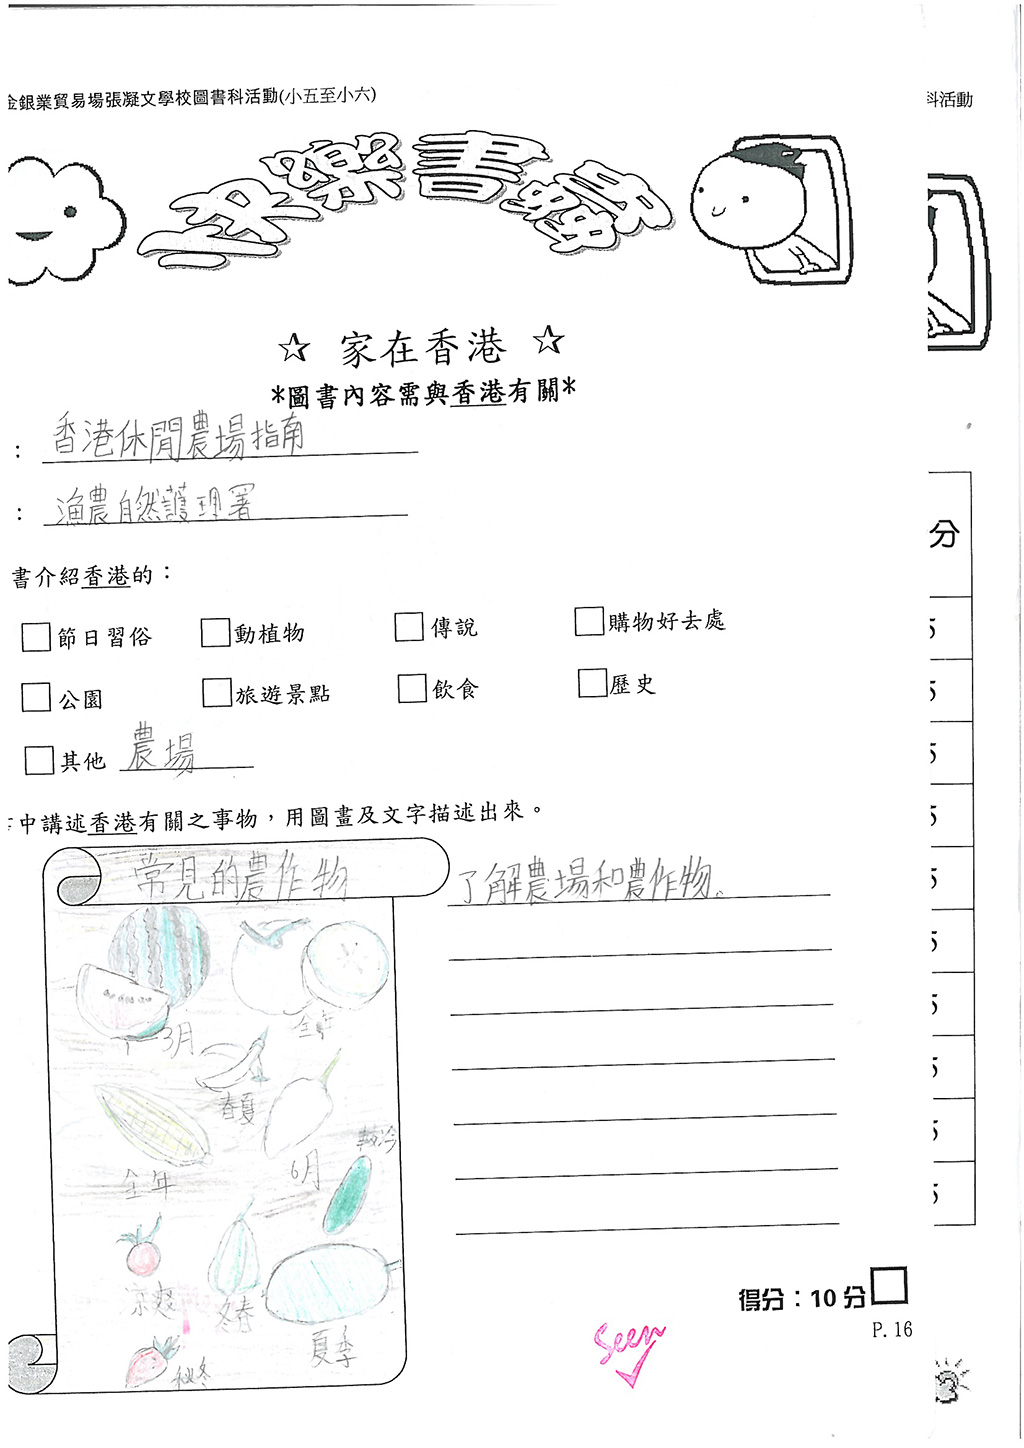 金銀業貿易場張凝文學校圖書科活動(小五至小六)
科活動
樂書
☆ 家在香港 ☆
*圖書內容需與香港有關*
: 香港休閒農場指南
: 漁農自然護理署
書介紹香港的：
節日習俗 動植物 傳說 購物好去處
公園 旅遊景點 飲食 歷史
其他 農場
中講述香港有關之事物，用圖畫及文字描述出來。
常見的農作物
了解農場和農作物。
3月
全年
春夏
6月
較冷
全年
涼爽
冬春
夏季
秋冬
分
5
5
5
5
5
5
5
5
5
5
得分：10 分
P. 16
Seen